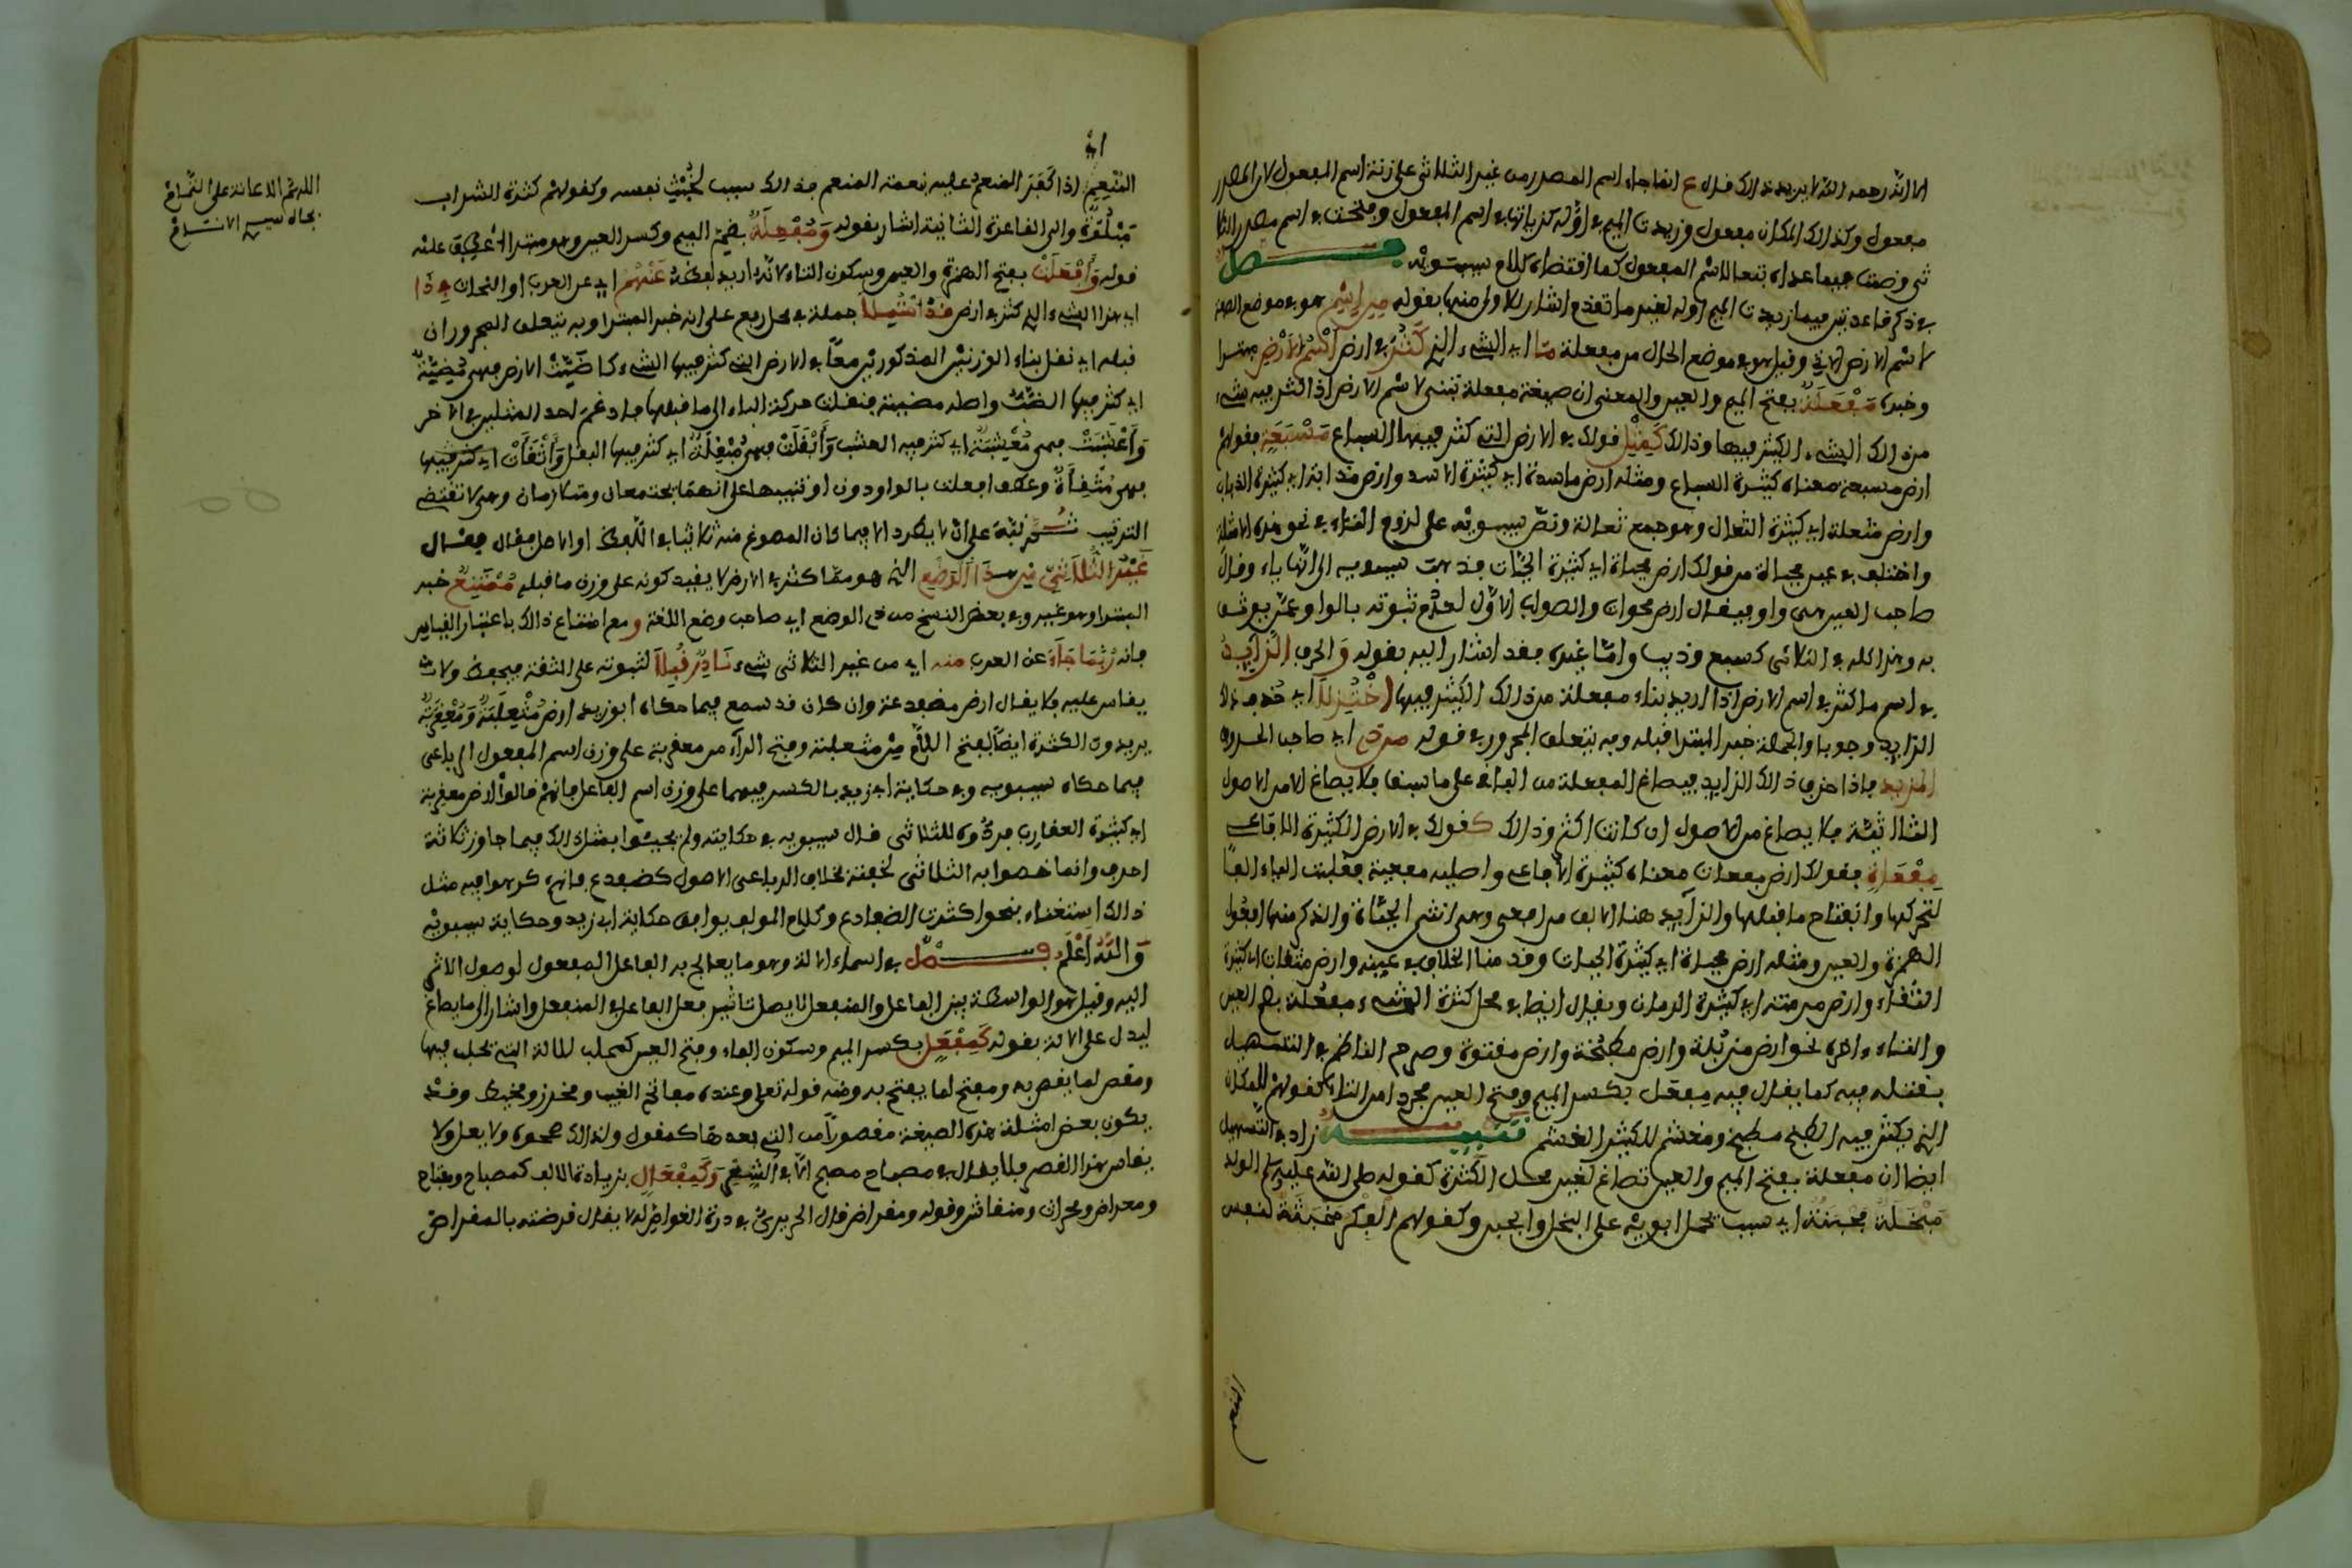 مفعول وكذالك المكان مفعول وزيدت الميم في اوله كزيادتها في اسم المفعول
فصل
في ذكر قاعدتين فيما زيدت الميم اوله لغير ما تقدم اشار للاولى منها بقوله من اسم هو في موضع الصفة
لاسم الارض وقيل هو في موضع الحال من مفعلة ما اي الشيء الذي كثر في ارض اسم الارض مبتدا
وخبره مفعلة بفتح الميم والعين والمعنى ان صيغة مفعلة تبنى لاسم الارض اذا كثر فيه شيء
من ذالك الشيء الكثير فيها وذالك كمثل قولك في الارض التي كثر فيها السباع مسبعة فقولك
ارض مسبعة معناه كثيرة السباع ومثله ارض ماسدة اي كثيرة الاسد وارض مذابة اي كثيرة الذياب
وارض مثعلة اي كثيرة الثعال وهو جمع ثعالة ونص سيبويه على لزوم التاء في نحو هذه الامثلة
واختلف في عين محياة من قولك ارض محياة اي كثيرة الحيات فذهب سيبويه الى انها ياء وقال
صاحب العين هي واو فيقال ارض محواة والصواب الاول لعدم ثبوته بالواو عمن يوثق
به وهذا كله في الثلاثي كسبع وذيب واما غيره فقد اشار اليه بقوله والحرف الزايد
في اسم ما كثر في اسم الارض اذا اريد بناء مفعلة من ذالك الكثير فيها اختزلا اي حذف ذالك
الزايد وجوبا والجملة خبر المبتدا قبله وبه يتعلق المجرور في قوله من ذي اي صاحب الحروف
المزيد فاذا حذف ذالك الزايد فيصاغ المفعلة من الباقي على ما سبق فلا يصاغ الا من الاصول
الثلاثية فلا يصاغ من الاصول ان كانت اكثر وذالك كقولك في الارض الكثيرة الافاعي
مفعاة فقولك ارض مفعاة معناه كثيرة الافاعي واصله مفعية فقلبت الياء الفا
لتحركها وانفتاح ما قبلها والزايد هنا الالف من افعى وهي انثى الحيات والذكر منها افعوان
الهمزة والعين ومثله ارض محياة اي كثيرة الحيات وقدمنا الخلاف في عينه وارض مثفاة اي كثيرة
الثفاء وارض مرمنة اي كثيرة الرمان ويقال ايضا في محل كثرة الشيء مفعلة بضم العين
والتاء اخره نحو ارض مزبلة وارض مطبخة وارض مقثوة وصرح الناظم في التسهيل
بقلته فيه كما يقال فيه مفعل بكسر الميم وفتح العين مجردا من التاء كقولهم للمكان
الذي يكثر فيه الطبخ مطبخ ومغشم للكثير الغشم تنبيه زاد في التسهيل
ايضا ان مفعلة بفتح الميم والعين تصاغ لغير محل الكثرة كقوله صلى الله عليه وسلم الولد
مبخلة مجبنة اي سبب يحمل ابويه على البخل والجبن وكقولهم الكفر مخبثة لنفس
المنعم اذا كفر المنعم عليه نعمة المنعم فذالك سبب لخبث نفسه وكقولهم كثرة الشراب
مبولة والى القاعدة الثانية اشار بقوله ومفعلة بضم الميم وكسر العين وهو مبتدا عطف عليه
قوله وافعلت بفتح الهمزة والعين وسكون التاء لانه اريد لفظه عنهم اي عن العرب او النحاة في ذا
اي هذا الشيء الذي كثر في ارض قد احتملا جملة في محل رفع على انه خبر المبتدا وبه يتعلق المجروران
قبله اي نقل بناء الوزنين المذكورين معا في الارض التي كثر فيها الشيء كاضبت الارض فهي مضبة
اي كثر فيها الضب واصله مضببة فنقلت حركة الباء الى ما قبلها فادغم احد المثلين في الاخر
واعشبت فهي معشبة اي كثر فيه العشب وابقلت فهي مبقلة اي كثر فيها البقل واثفات اي كثر فيها
فهي مثفاة وعطف افعلت بالواو دون او تنبيها على انهما بجتمعان ومتلازمان وهي لا تقتضي
الترتيب ثم نبه على انه لا يطرد الا فيما كان المصوغ منه ثلاثيا في اللفظ او الاصل فقال
غير الثلاثي من ذا الوضع الذي هو مما كثر في الارض لا يفيد كونه على وزن ما قبله ممتنع خبر
المبتدا وهو غير وفي بعض النسخ من ذي الوضع اي صاحب وضع اللغة ومع امتناع ذالك باعتبار القياس
فانه ربما جاء عن العرب منه اي من غير الثلاثي شيء نادر قبلا لثبوته على الثقة فيحفظ ولا
يقاس عليه فلا يقال ارض مضفدعة وان كان قد سمع فيما حكاه ابو زيد ارض مثعلبة ومعقربة
يريدون الكثرة ايضا بفتح اللام من مثعلبة وفتح الراء من معقربة على وزن اسم المفعول الرباعي
فيما حكاه سيبويه وفي حكاية ابي زيد بالكسر فيهما على وزن اسم الفاعل فانهم قالوا ارض معقربة
اي كثيرة العقارب فردوه للثلاثي قال سيبويه في حكايته ولم يجيئوا بمثل ذالك فيما جاوز ثلاثة
احرف وانما خصوا به الثلاثي لخفته بخلاف الرباعي الاصول كضفدع فانهم كرهوا فيه مثل
ذالك استغناء بنحو كثيرة الضفادع وكلام المولف يوافق حكاية ابي زيد وحكاية سيبويه
والله اعلم فصل في اسماء الالة وهو ما يعالج به الفاعل المفعول لوصول الاثر
اليه وقيل هو الواسطة بين الفاعل والمنفعل لايصال تاثير فعل الفاعل في المنفعل واشار الى ما يصاغ
ليدل على الالة بقوله كمفعل بكسر الميم وسكون الفاء وفتح العين كمحلب للالة التي يحلب فيها
ومقص لما يقص به ومفتح لما يفتح به ومنه قوله تعالى وعنده مفاتح الغيب ومخرز ومخيط وقد
يكون بعض امثلة هذه الصيغة مقصورا من التي بعدها كمقول ولذالك صححوه ولا يعل ولا
يقاس هذا القصر فلا يقال في مصباح مصبح وكمفعال بزيادة الالف كمصباح ومفتاح
ومحراض ومحراث ومنقاش وقوله ومقراض قال الحريري في درة الغواص لا يقال قرضته بالمقراض
اللهم الاعانة على التمام